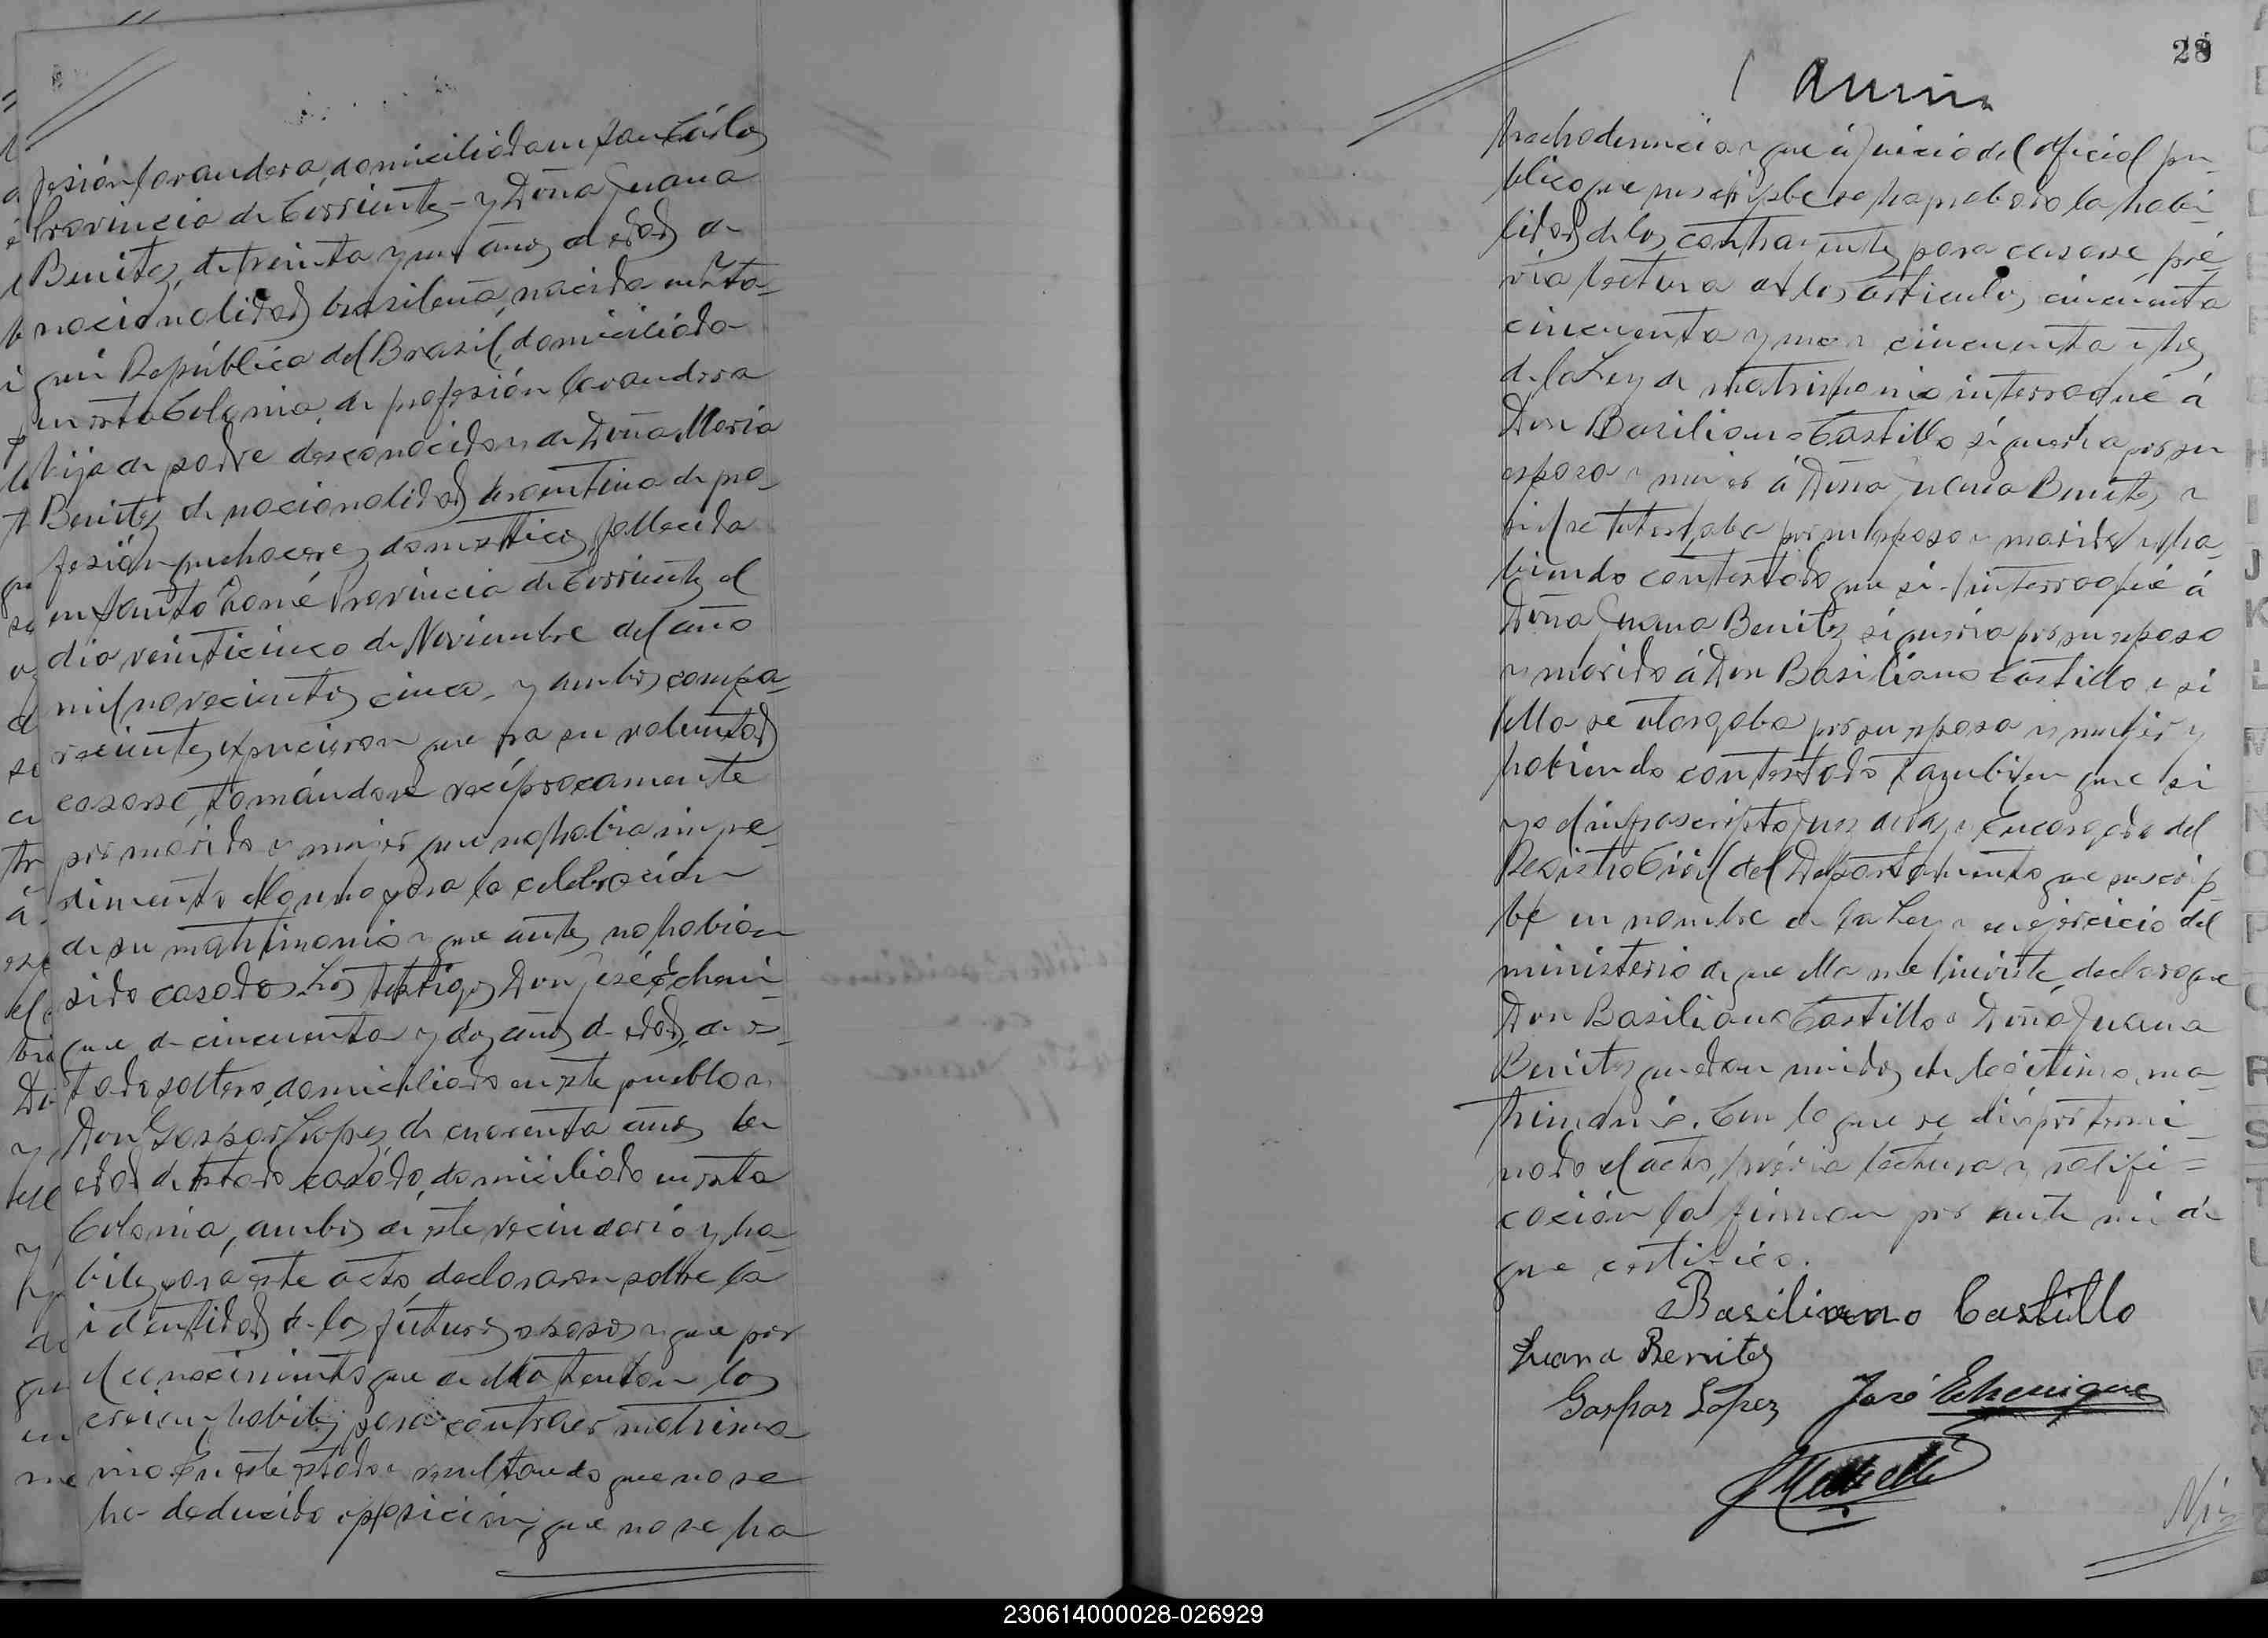 fesión lavandera, domiciliada en San Carlos
Provincia de Corrientes - y Doña Juana
Benitez, de treinta y un años de edad de
nacionalidad brasileña, nacida en Ita-
qui República del Brasil, domiciliada
en esta Colonia, de profesión lavandera
hija de padre desconocido y de Doña Maria
Benitez de nacionalidad Argentina de pro-
fesión quehaceres domesticos, fallecida
en Santo Tomé Provincia de Corrientes el
dia veinticinco de Noviembre del año
mil novecientos cinco, y ambos compa-
recientes expucieron que era su voluntad
casarse, tomándose recíprocamente
por marido y mujer que no habia impe-
dimento alguno para la celebración
de su matrimonio y que antes no habian
sido casados. Los testigos Don José Echeni-
que de cincuenta y dos años de edad, de es-
tado soltero, domiciliado en este pueblo y
Don Gaspar Lopez de cuarenta años de
edad de estado casado, domiciliado en esta
Colonia, ambos de este vecindario y ha-
biles para este acto, declararon sobre la
identidad de los futuros esposos y que por
el conocimiento que de ellos tenian los
creian habiles para contraer matrimo-
nio. En este estado y resultando que no se
ha deducido oposición, que no se ha
28
hecho denuncia y que á juicio del oficial pu-
blico que suscripbe se ha probado la habi-
lidad de los contrayentes para casarse, pré-
via lectura de los articulos cincuenta
cincuenta y uno y cincuenta y tres
de la Ley de matrimonio interrogué á
Don Basiliano Castillo si queria por su
esposa y mujer á Doña Juana Benitez y
si el se otorgaba por su esposo y marido y ha-
biendo contestado que si - interrogué á
Doña Juana Benitez si queria por su esposo
y marido á Don Basiliano Castillo y si
ella se otorgaba por su esposa y mujer y
habiendo contestado tambien que si
yo el infrascripto Juez de Paz y Encargado del
Registro Civil del Departamento que suscrip-
be en nombre de la Ley y en ejercicio del
ministerio de que ella me inviste, declaro que
Don Basiliano Castillo y Doña Juana
Benitez quedan unidos en legítimo ma-
trimonio. Con lo que se dió por termi-
nado el acto, prévia lectura y ratifi-
cación la firman por ante mi de
que certifico.
Basiliano Castillo
Juana Benitez
Gaspar Lopez José Echenique
230614000028-026929